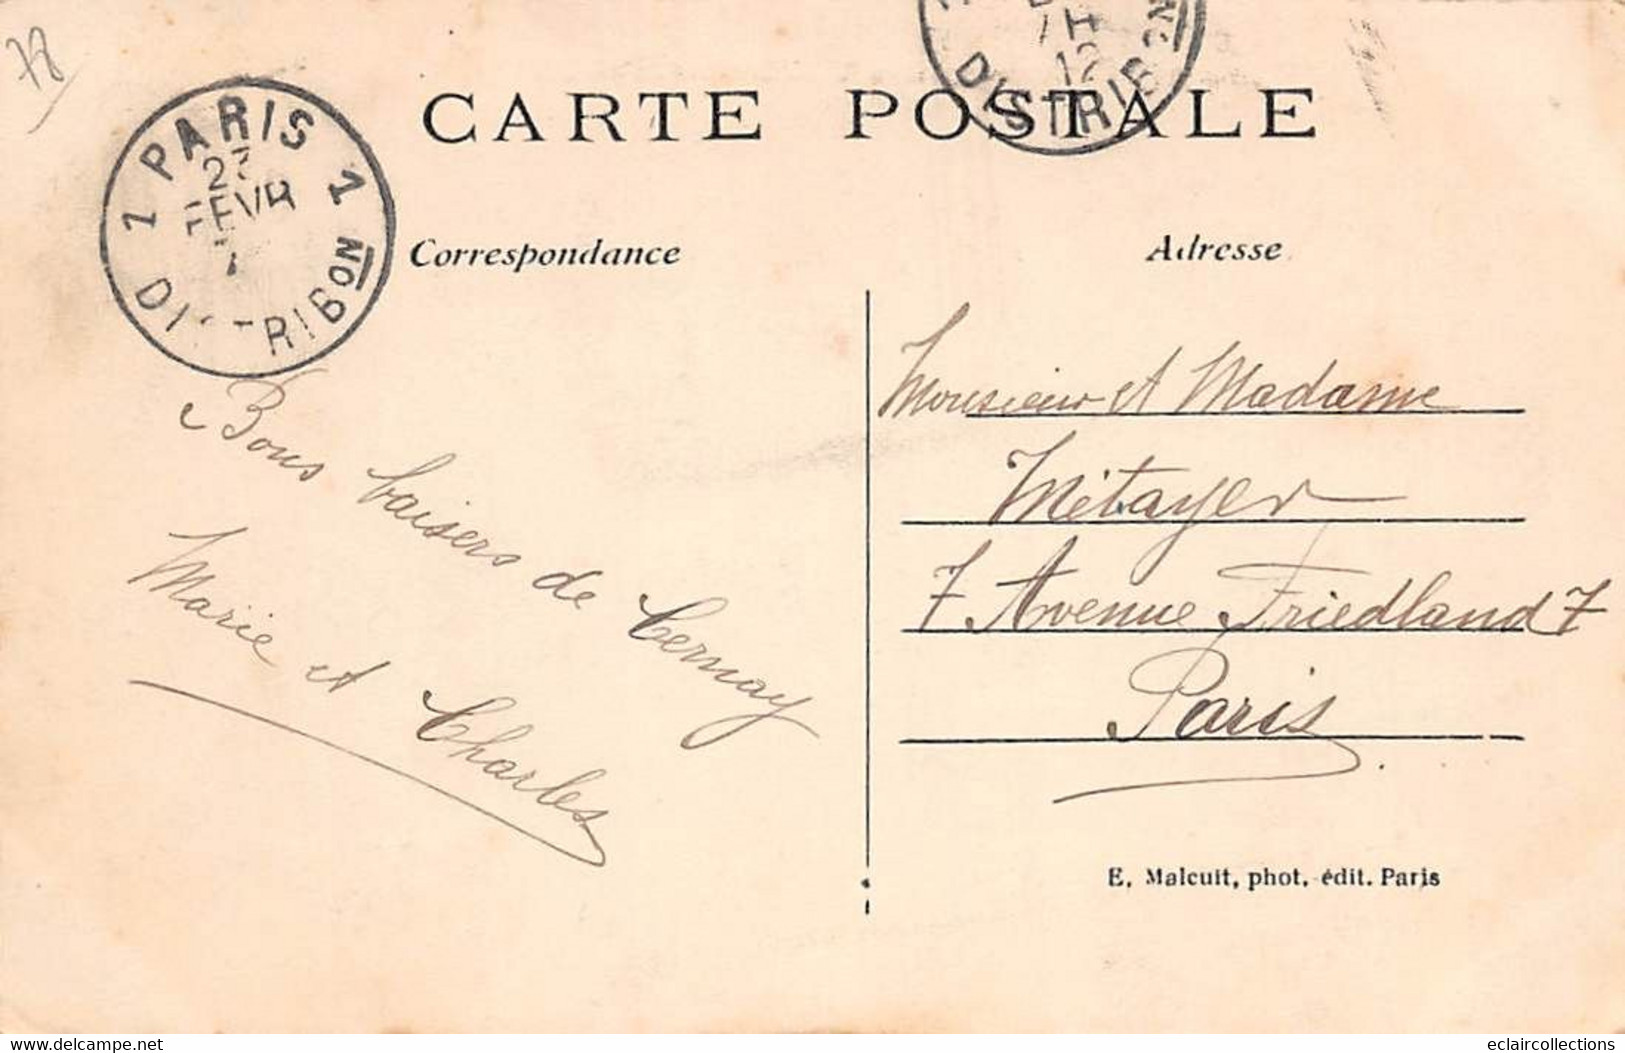 78
PARIS 1
27
FEVR
1
DISTRIBON
12
DISTRIBON
CARTE POSTALE
Correspondance
Adresse
Bons baisers de Cernay
Marie et Charles
Monsieur et Madame
Métayer
7 Avenue Friedland 7
Paris
E. Malcuit, phot. édit. Paris
www.delcampe.net
eclaircollections